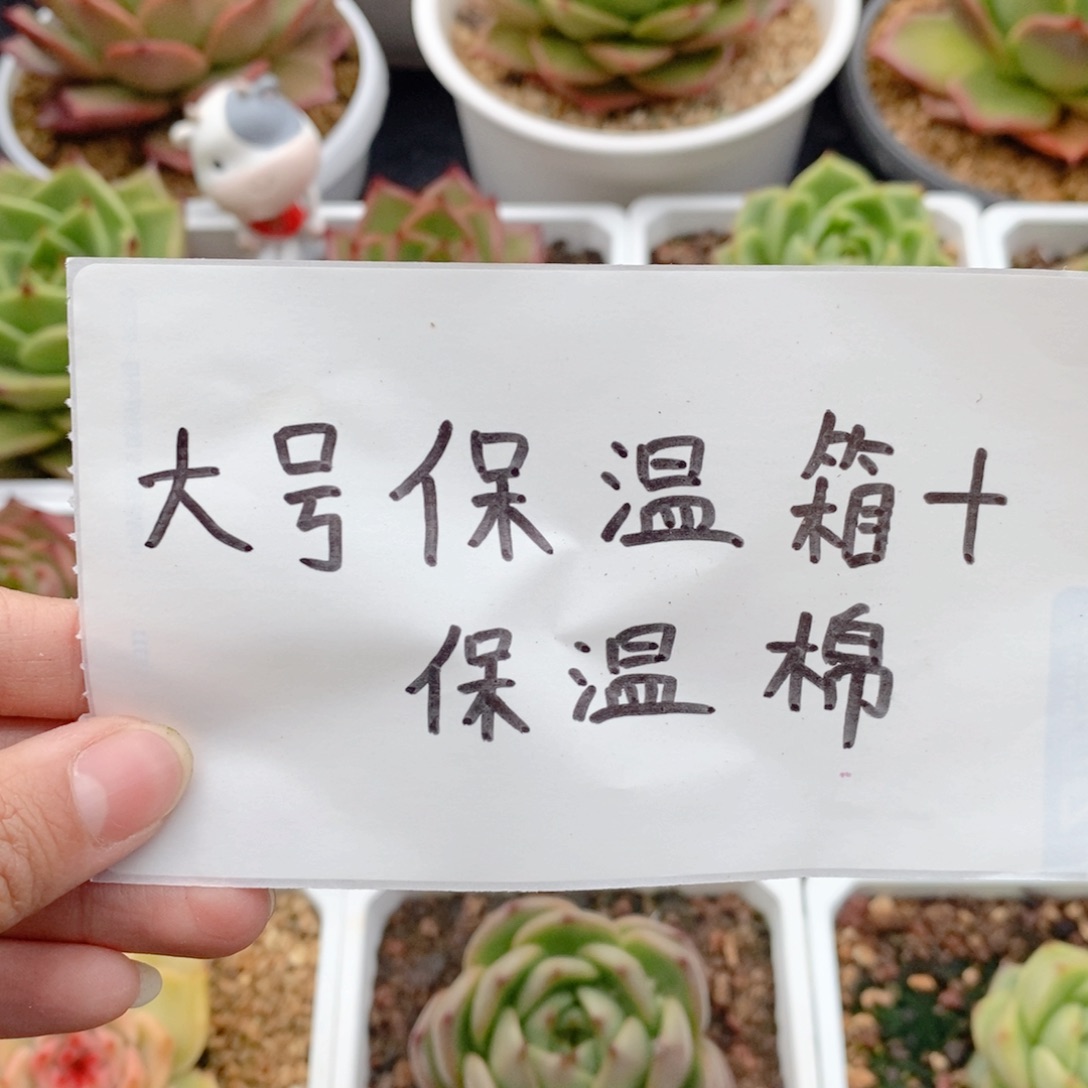 大号保温箱+
保温棉